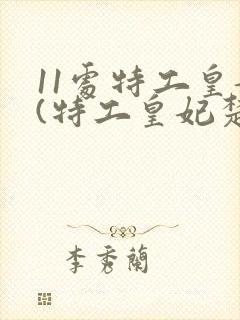 11處特工皇
(特工皇妃楚
李秀蘭